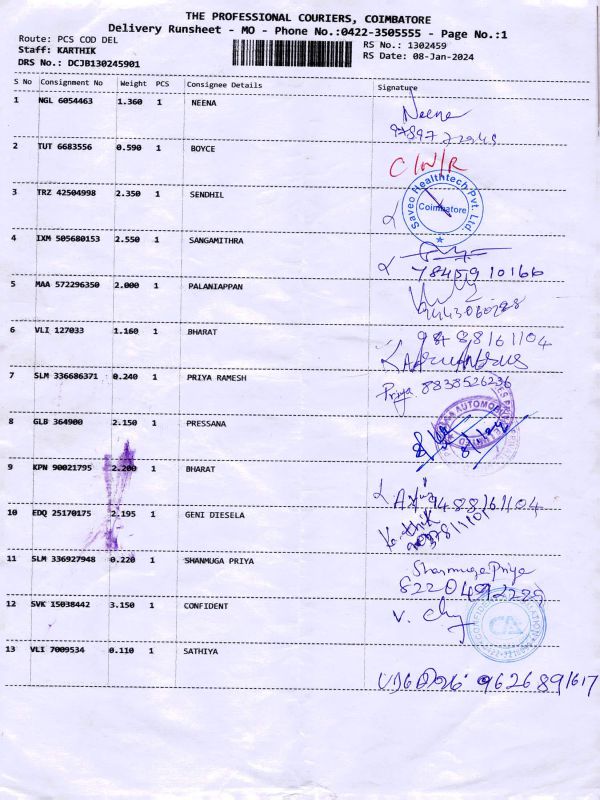 THE PROFESSIONAL COURIERS, COIMBATORE
Delivery Runsheet - MO - Phone No.:0422-3505555 - Page No.:1
Route: PCS COD DEL
RS No.: 1302459
Staff: KARTHIK
RS Date: 08-Jan-2024
DRS No.: DCJB130245901
S No Consignment No Weight PCS Consignee Details Signature
1 NGL 6054463 1.360 1 NEENA Neena
2 TUT 6683556 0.590 1 BOYCE C/N/R
3 TRZ 42504998 2.350 1 SENDHIL Saveo Healthtech Pvt. Ltd. Coimbatore
4 IXM 505680153 2.550 1 SANGAMITHRA
7845910166
5 MAA 572296350 2.000 1 PALANIAPPAN
9443060288
6 VLI 127033 1.160 1 BHARAT 9488161104
7 SLM 336686371 0.240 1 PRIYA RAMESH Priya 8838526236
8 GLB 364900 2.150 1 PRESSANA AUTOMOBILES
9 KPN 90021795 2.200 1 BHARAT
9488161104
10 EDQ 25170175 2.195 1 GENI DIESELA Karthik
11 SLM 336927948 0.220 1 SHANMUGA PRIYA Shanmuga Priya
8220492229
12 SVK 15038442 3.150 1 CONFIDENT
13 VLI 7009534 0.110 1 SATHIYA
9626891617